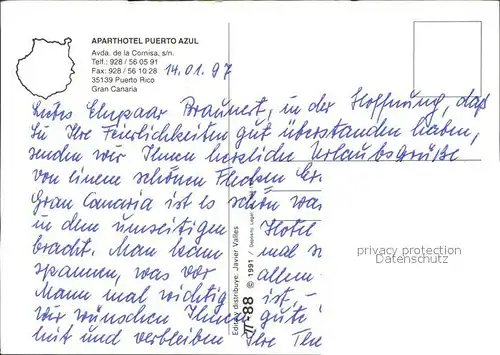 APARTHOTEL PUERTO AZUL
Avda. de la Cornisa, s/n.
Telf.: 928 / 56 05 91
Fax: 928 / 56 10 28
35139 Puerto Rico
Gran Canaria
14.01.97
Ehepaar Braunert, in der Hoffnung, daß
Sie Ihre Feierlichkeiten gut überstanden haben,
senden wir Ihnen herzliche Urlaubsgrüße
von einem schönen Flecken Er
Gran Canaria ist es schön wa
in dem umseitigen Hotel
bracht. Man kann mal s
spannen, was vor allem
Mann mal wichtig ist, –
Wir wünschen Ihnen gute
heit und verbleiben Ihre
Edita y distribuye: Javier Valles
π-88 © 1991 / Deposito Legal
privacy protection
Datenschutz